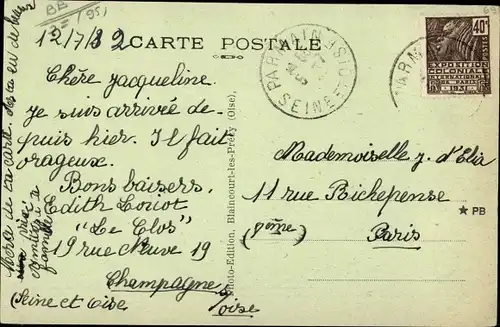 BB
5F/95)
12/7/32
CARTE POSTALE
Chère Jacqueline
Je suis arrivée de-
puis hier. Il fait
orageux.
Bons baisers.
Edith Loriot
"Le Clos"
19 rue Neuve 19
Champagne s/oise
(Seine et Oise
Merci de ta carte.
famille
Photo-Edition, Blaincourt-les-Précy (Oise).
PARMAIN
SEINE
40c
EXPOSITION
COLONIALE
INTERNATIONALE
PARIS
1931
PARM
Mademoiselle J. d'Elia
11 rue Richepense
(8ème)
Paris
★PB